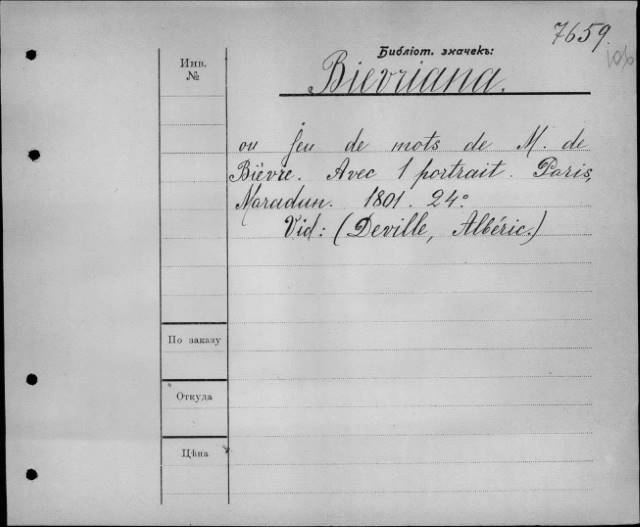 7659.
106
Библіот. значекъ:
Инв.
№
Bievriana.
ou jeu de mots de M. de
Bièvre. Avec 1 portrait. Paris,
Maradan. 1801. 24°
Vid: (Deville, Albéric.)
По заказу
Откуда
Цѣна